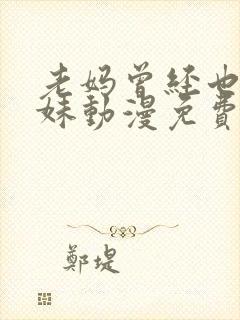 老妈曾经也
妹動漫免費
鄭堤